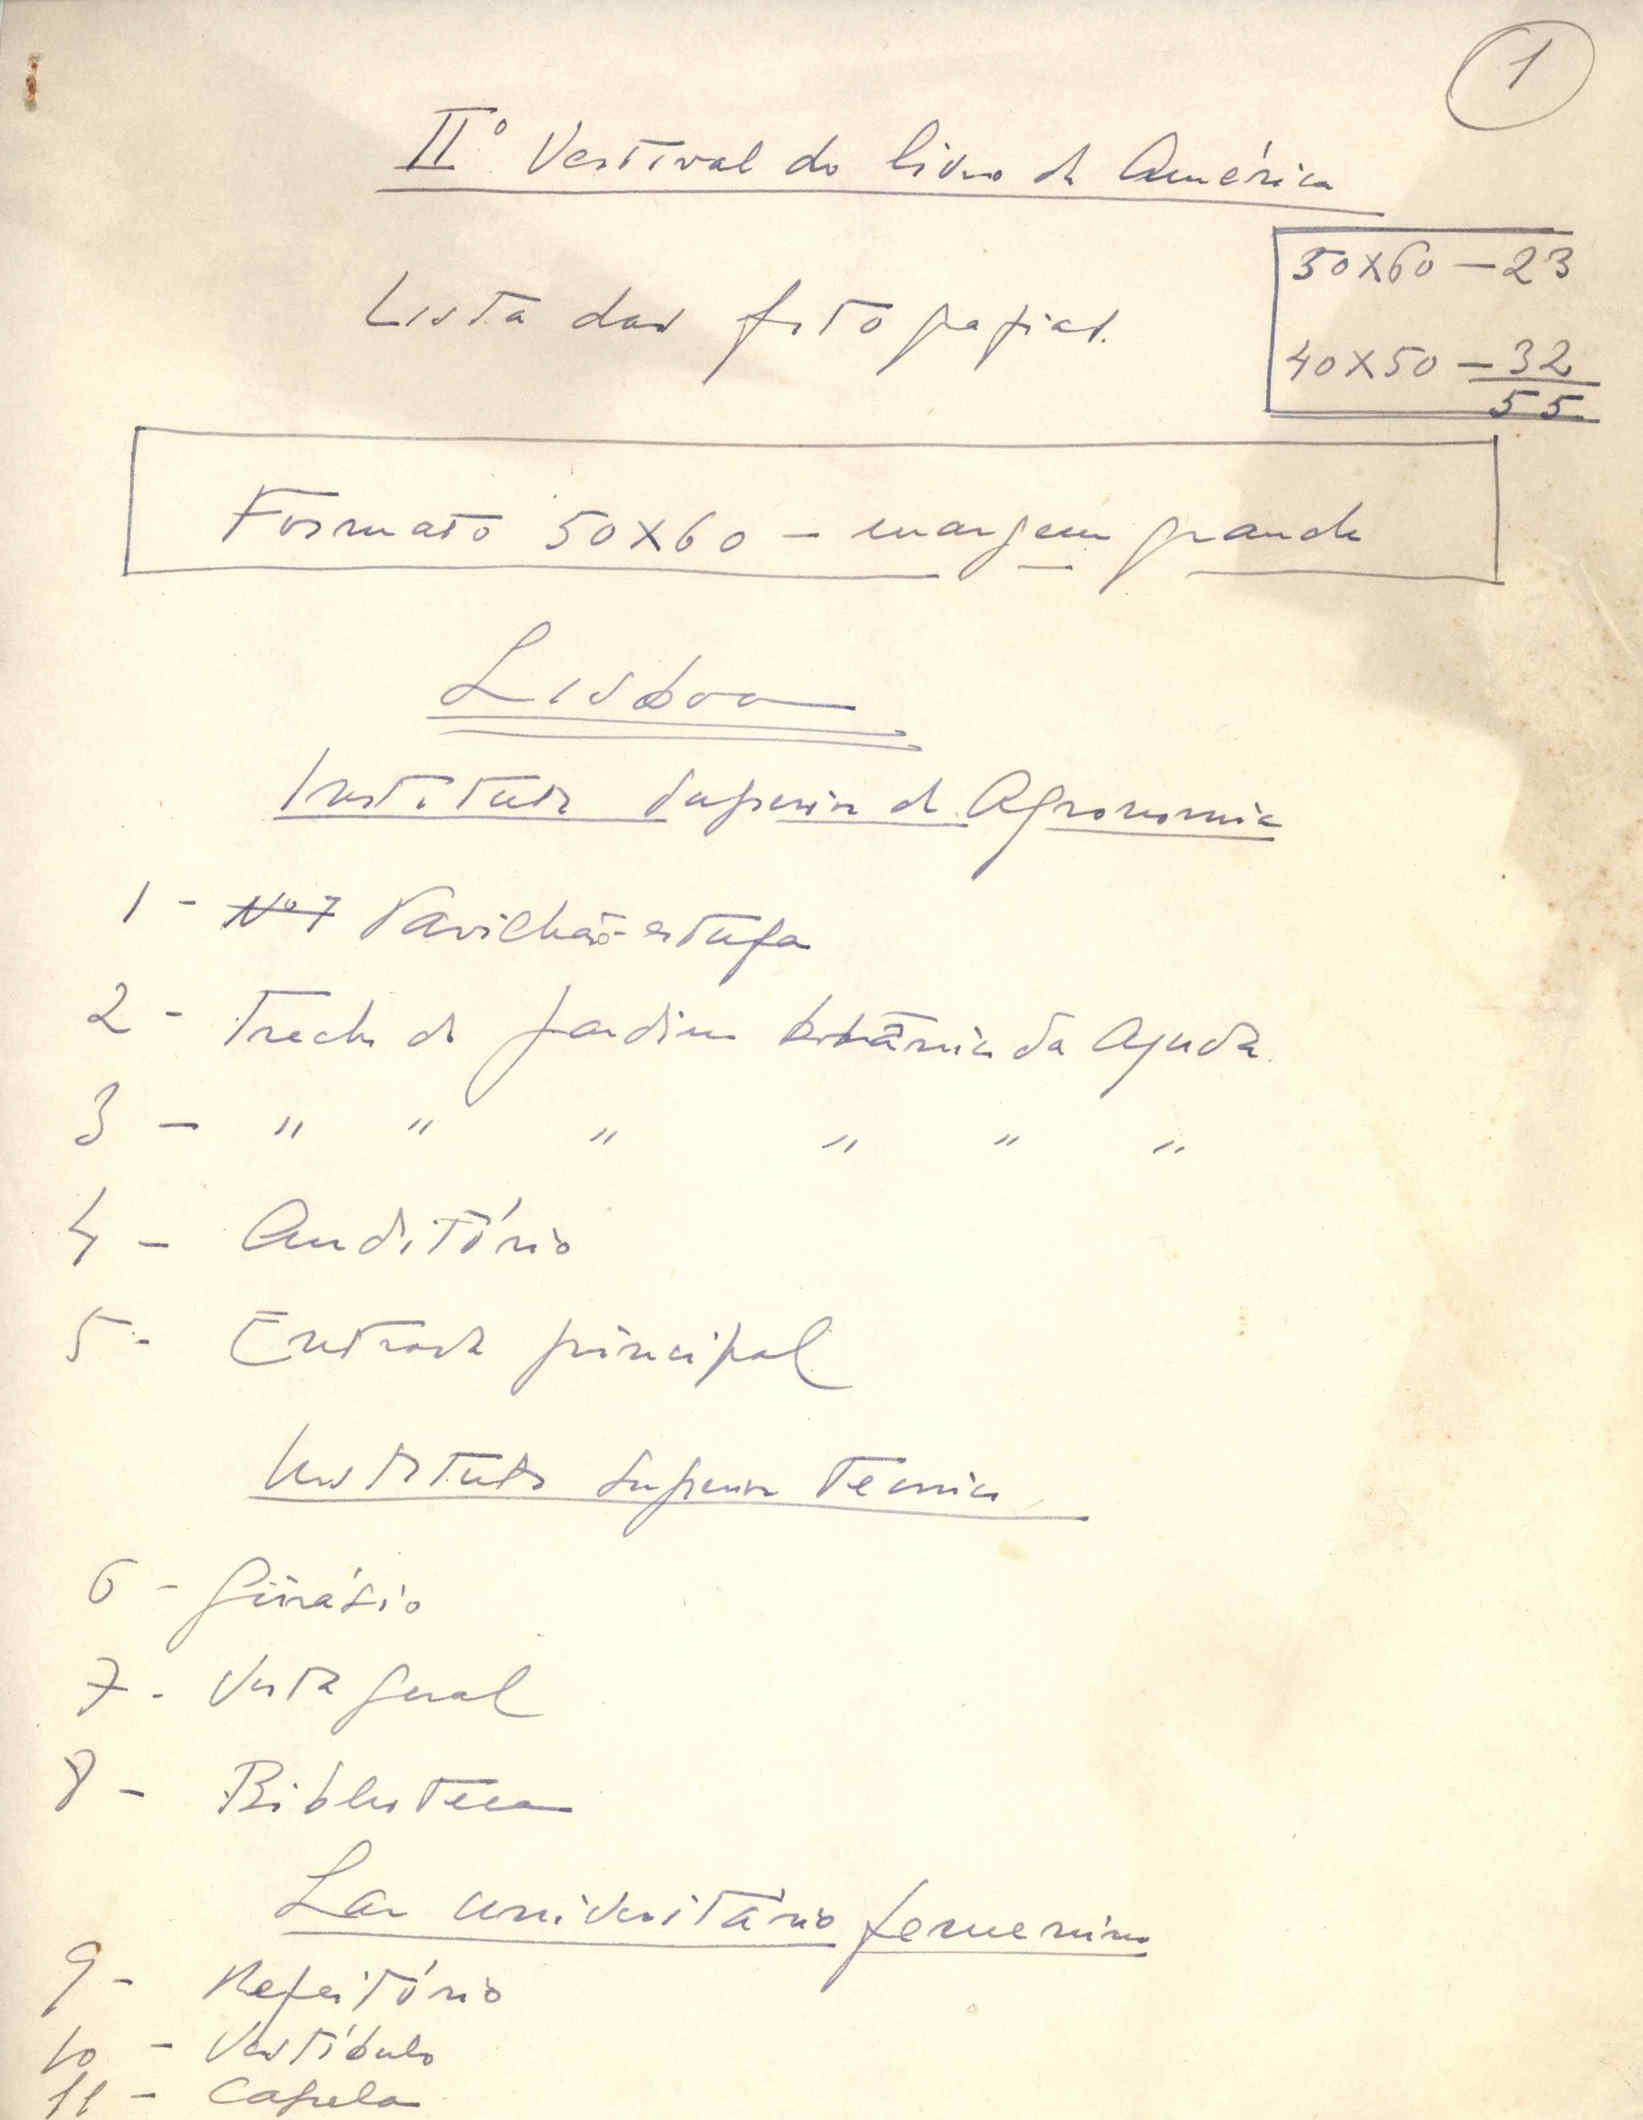 1
IIº Vestival do livro da América
Lista das fotografias.
50x60 – 23
40x50 – 32
55
Formato 50x60 – margem grande
Lisboa
Instituto Superior de Agronomia
1 - Nº 7 Pavilhão-estufa
2 - Trecho do jardim botânico da Ajuda
3 – " " " " " "
4 – Auditório
5 - Entrada principal
Instituto Superior Técnico
6 - Ginásio
7 - Vista geral
8 – Biblioteca
Lar universitário femenino
9 - Refeitório
10 - Vestíbulo
11 – Capela